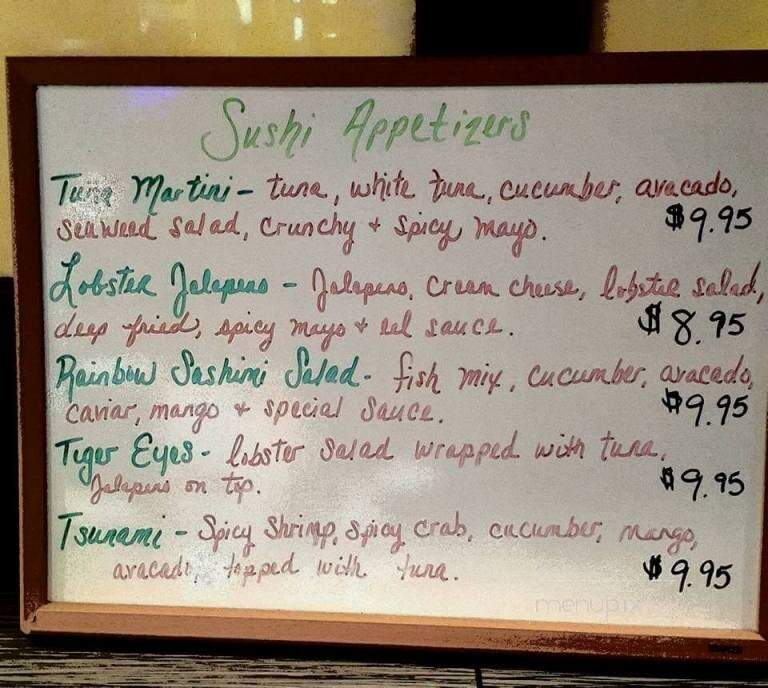 Sushi Appetizers
Tuna Martini - tuna, white tuna, cucumber, avacado,
seaweed salad, crunchy + spicy mayo. $9.95
Lobster Jalepeno - Jalapeno, cream cheese, lobster salad,
deep fried, spicy mayo + eel sauce. $8.95
Rainbow Sashimi Salad - fish mix, cucumber, avacado,
caviar, mango + special sauce. $9.95
Tiger Eyes - lobster salad wrapped with tuna,
Jalapeno on top. $9.95
Tsunami - Spicy Shrimp, spicy crab, cucumber, mango,
avacado, topped with tuna. $9.95
menupix